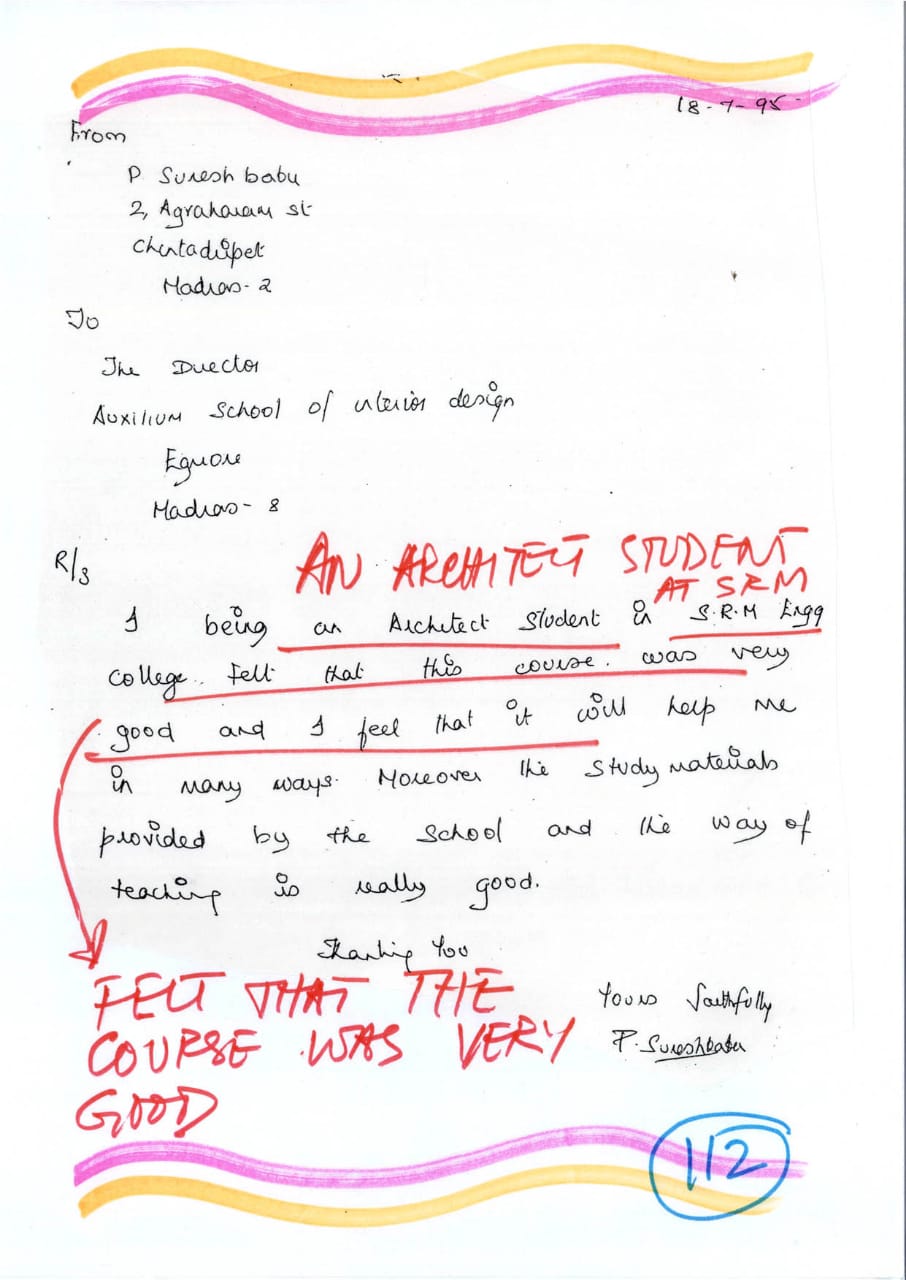 18-7-95
From
P. Suresh babu
2, Agraharam st
Chintadripet
Madras-2
To
The Director
Auxilium School of interior design
Egmore
Madras-8
R/s
AN ARCHITECT STUDENT
AT SRM
I being an Architect Student in S.R.M Engg
college. Felt that this course. was very
good and I feel that it will help me
in many ways. Moreover the study materials
provided by the school and the way of
teaching is really good.
Thanking You
Yours faithfully
P. Sureshbabu
FELT THAT THE
COURSE WAS VERY
GOOD
112